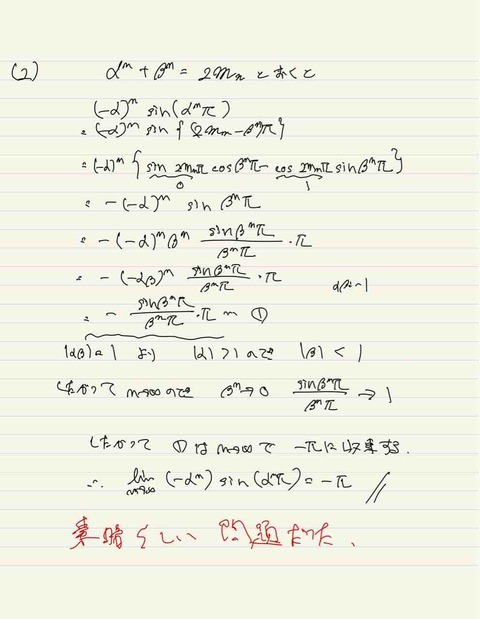 (2) α^n + β^n = 2m_n とおくと
(-α)^n sin(α^nπ)
= (-α)^n sin{(2m_n - β^n)π}
= (-α)^n {sin 2m_nπ cosβ^nπ - cos 2m_nπ sinβ^nπ}
0 1
= -(-α)^n sin β^nπ
= -(-α)^n β^n sinβ^nπ/β^nπ ・π
= -(-αβ)^n sinβ^nπ/β^nπ ・π αβ=-1
= - sinβ^nπ/β^nπ ・π 〜 ①
|αβ|=1 より |α|>1 ので |β|<1
したがって n→∞ のとき β^n→0 sinβ^nπ/β^nπ → 1
したがって ①は n→∞で -πに収束する.
∴ lim n→∞ (-α^n) sin(α^nπ) = -π //
素晴らしい 問題だった、